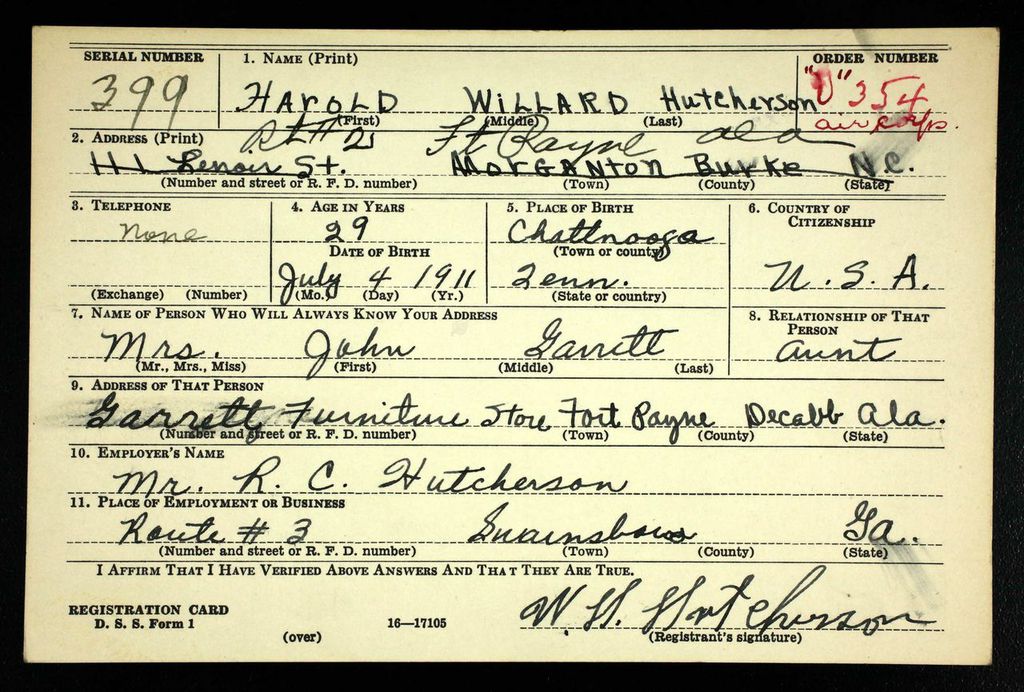 SERIAL NUMBER 1. NAME (Print) ORDER NUMBER
399 HAROLD WILLARD Hutcherson "V" 354
(First) (Middle) (Last) air corps.
2. ADDRESS (Print) Rt # 2 Ft Payne ala
111 Lenoir St. MORGANTON BURKE N.C.
(Number and street or R. F. D. number) (Town) (County) (State)
3. TELEPHONE 4. AGE IN YEARS 5. PLACE OF BIRTH 6. COUNTRY OF CITIZENSHIP
none 29 Chattnooga
DATE OF BIRTH (Town or county)
July 4 1911 Tenn. U. S. A.
(Exchange) (Number) (Mo.) (Day) (Yr.) (State or country)
7. NAME OF PERSON WHO WILL ALWAYS KNOW YOUR ADDRESS 8. RELATIONSHIP OF THAT PERSON
Mrs. John Garrett aunt
(Mr., Mrs., Miss) (First) (Middle) (Last)
9. ADDRESS OF THAT PERSON
Garrett Furniture Store Fort Payne Decabb Ala.
(Number and street or R. F. D. number) (Town) (County) (State)
10. EMPLOYER'S NAME
Mr. R. C. Hutcherson
11. PLACE OF EMPLOYMENT OR BUSINESS
Route # 3 Ga.
(Number and street or R. F. D. number) (Town) (County) (State)
I AFFIRM THAT I HAVE VERIFIED ABOVE ANSWERS AND THAT THEY ARE TRUE.
REGISTRATION CARD
D. S. S. Form 1 W. H. Hutcherson
(over) 16—17105 (Registrant's signature)